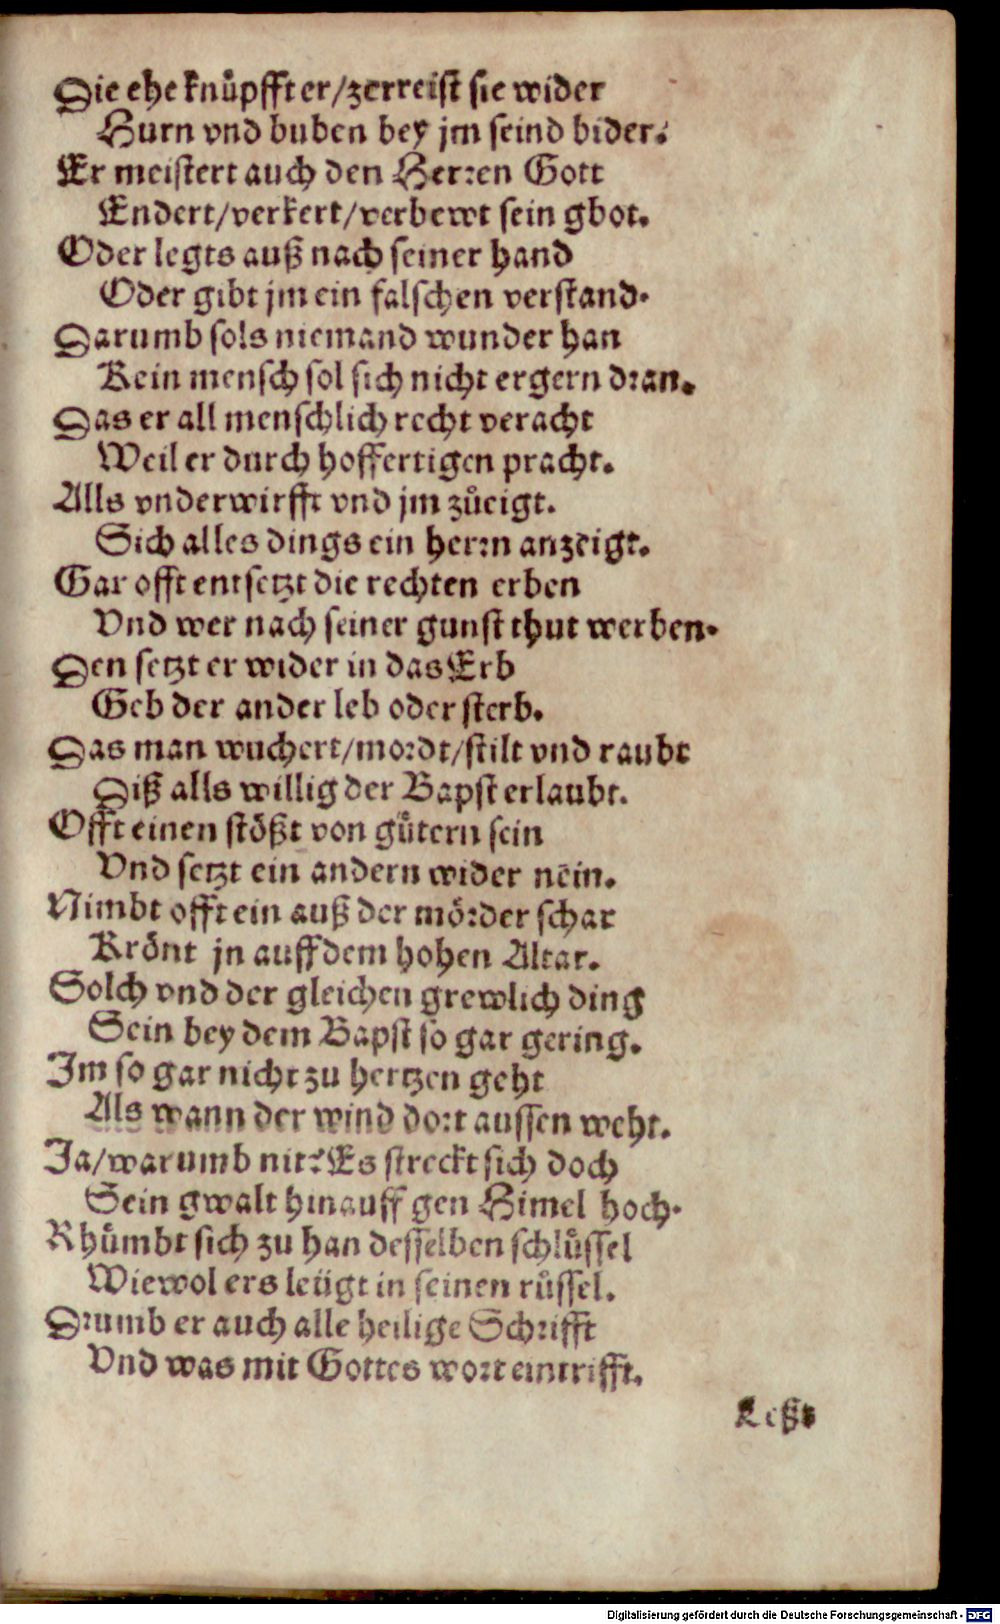 Die ehe knuͤpfft er/zerreist sie wider
Hurn vnd buben bey jm seind bider.
Er meistert auch den Herren Gott
Endert/verkert/verbewt sein gbot.
Oder legts auß nach seiner hand
Oder gibt jm ein falschen verstand.
Darumb sols niemand wunder han
Kein mensch sol sich nicht ergern dran.
Das er all menschlich recht veracht
Weil er durch hoffertigen pracht.
Alls vnderwirfft vnd jm zuͦeigt.
Sich alles dings ein herrn anzeigt.
Gar offt entsetzt die rechten erben
Vnd wer nach seiner gunst thut werben.
Den setzt er wider in das Erb
Geb der ander leb oder sterb.
Das man wuchert/mordt/stilt vnd raubt
Diß alls willig der Bapst erlaubt.
Offt einen stoͤßt von guͤtern sein
Vnd setzt ein andern wider nēin.
Nimbt offt ein auß der moͤrder schar
Kroͤnt jn auff dem hohen Altar.
Solch vnd der gleichen grewlich ding
Sein bey dem Bapst so gar gering.
Im so gar nicht zu hertzen geht
Als wann der wind dort aussen weht.
Ja/warumb nit? Es streckt sich doch
Sein gwalt hinauff gen Himel hoch.
Rhuͤmbt sich zu han desselben schluͤssel
Wiewol ers leügt in seinen ruͤssel.
Drumb er auch alle heilige Schrifft
Vnd was mit Gottes wort eintrifft.
Leßt
Digitalisierung gefördert durch die Deutsche Forschungsgemeinschaft - DFG